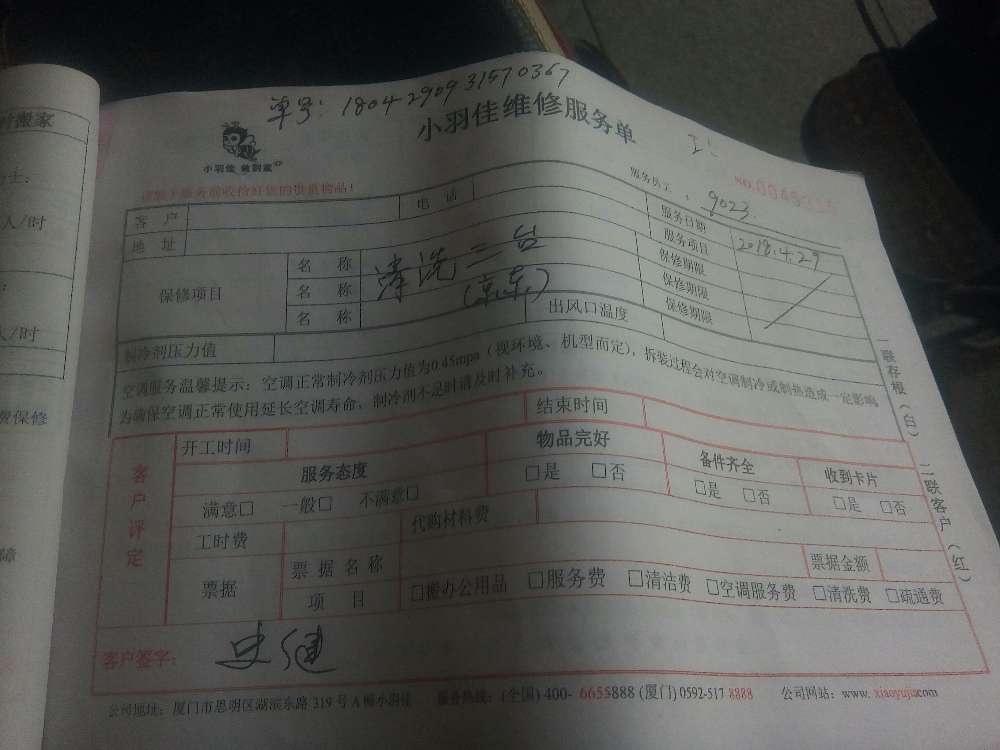 单号: 1804290931570367
小羽佳维修服务单
小羽佳 做到家
服务员工: 9023
NO.
客户 电话 服务日期 2018.4.29
地址 服务项目
保修项目 名称 清洗二台 保修期限
名称 (京东) 保修期限
名称 保修期限
制冷剂压力值 出风口温度
空调服务温馨提示: 空调正常制冷剂压力值为0.45mpa (视环境、机型而定), 拆装过程会对空调制冷或制热造成一定影响
为确保空调正常使用延长空调寿命, 制冷剂不足时请及时补充。
一联存根(白) 二联客户(红)
客户评定
开工时间 结束时间
服务态度 物品完好 备件齐全 收到卡片
满意□ 一般□ 不满意□ □是 □否 □是 □否 □是 □否
工时费 代购材料费
票据 票据名称 票据金额
项目 □搬办公用品 □服务费 □清洁费 □空调服务费 □清洗费 □疏通费
客户签字: 史健
公司地址: 厦门市思明区湖滨东路319号A幢小羽佳 服务热线: (全国) 400-6655888 (厦门) 0592-517 8888 公司网站: www.xiaoyujia.com
搬家
士:
人/时
:
人/时
费保修
障